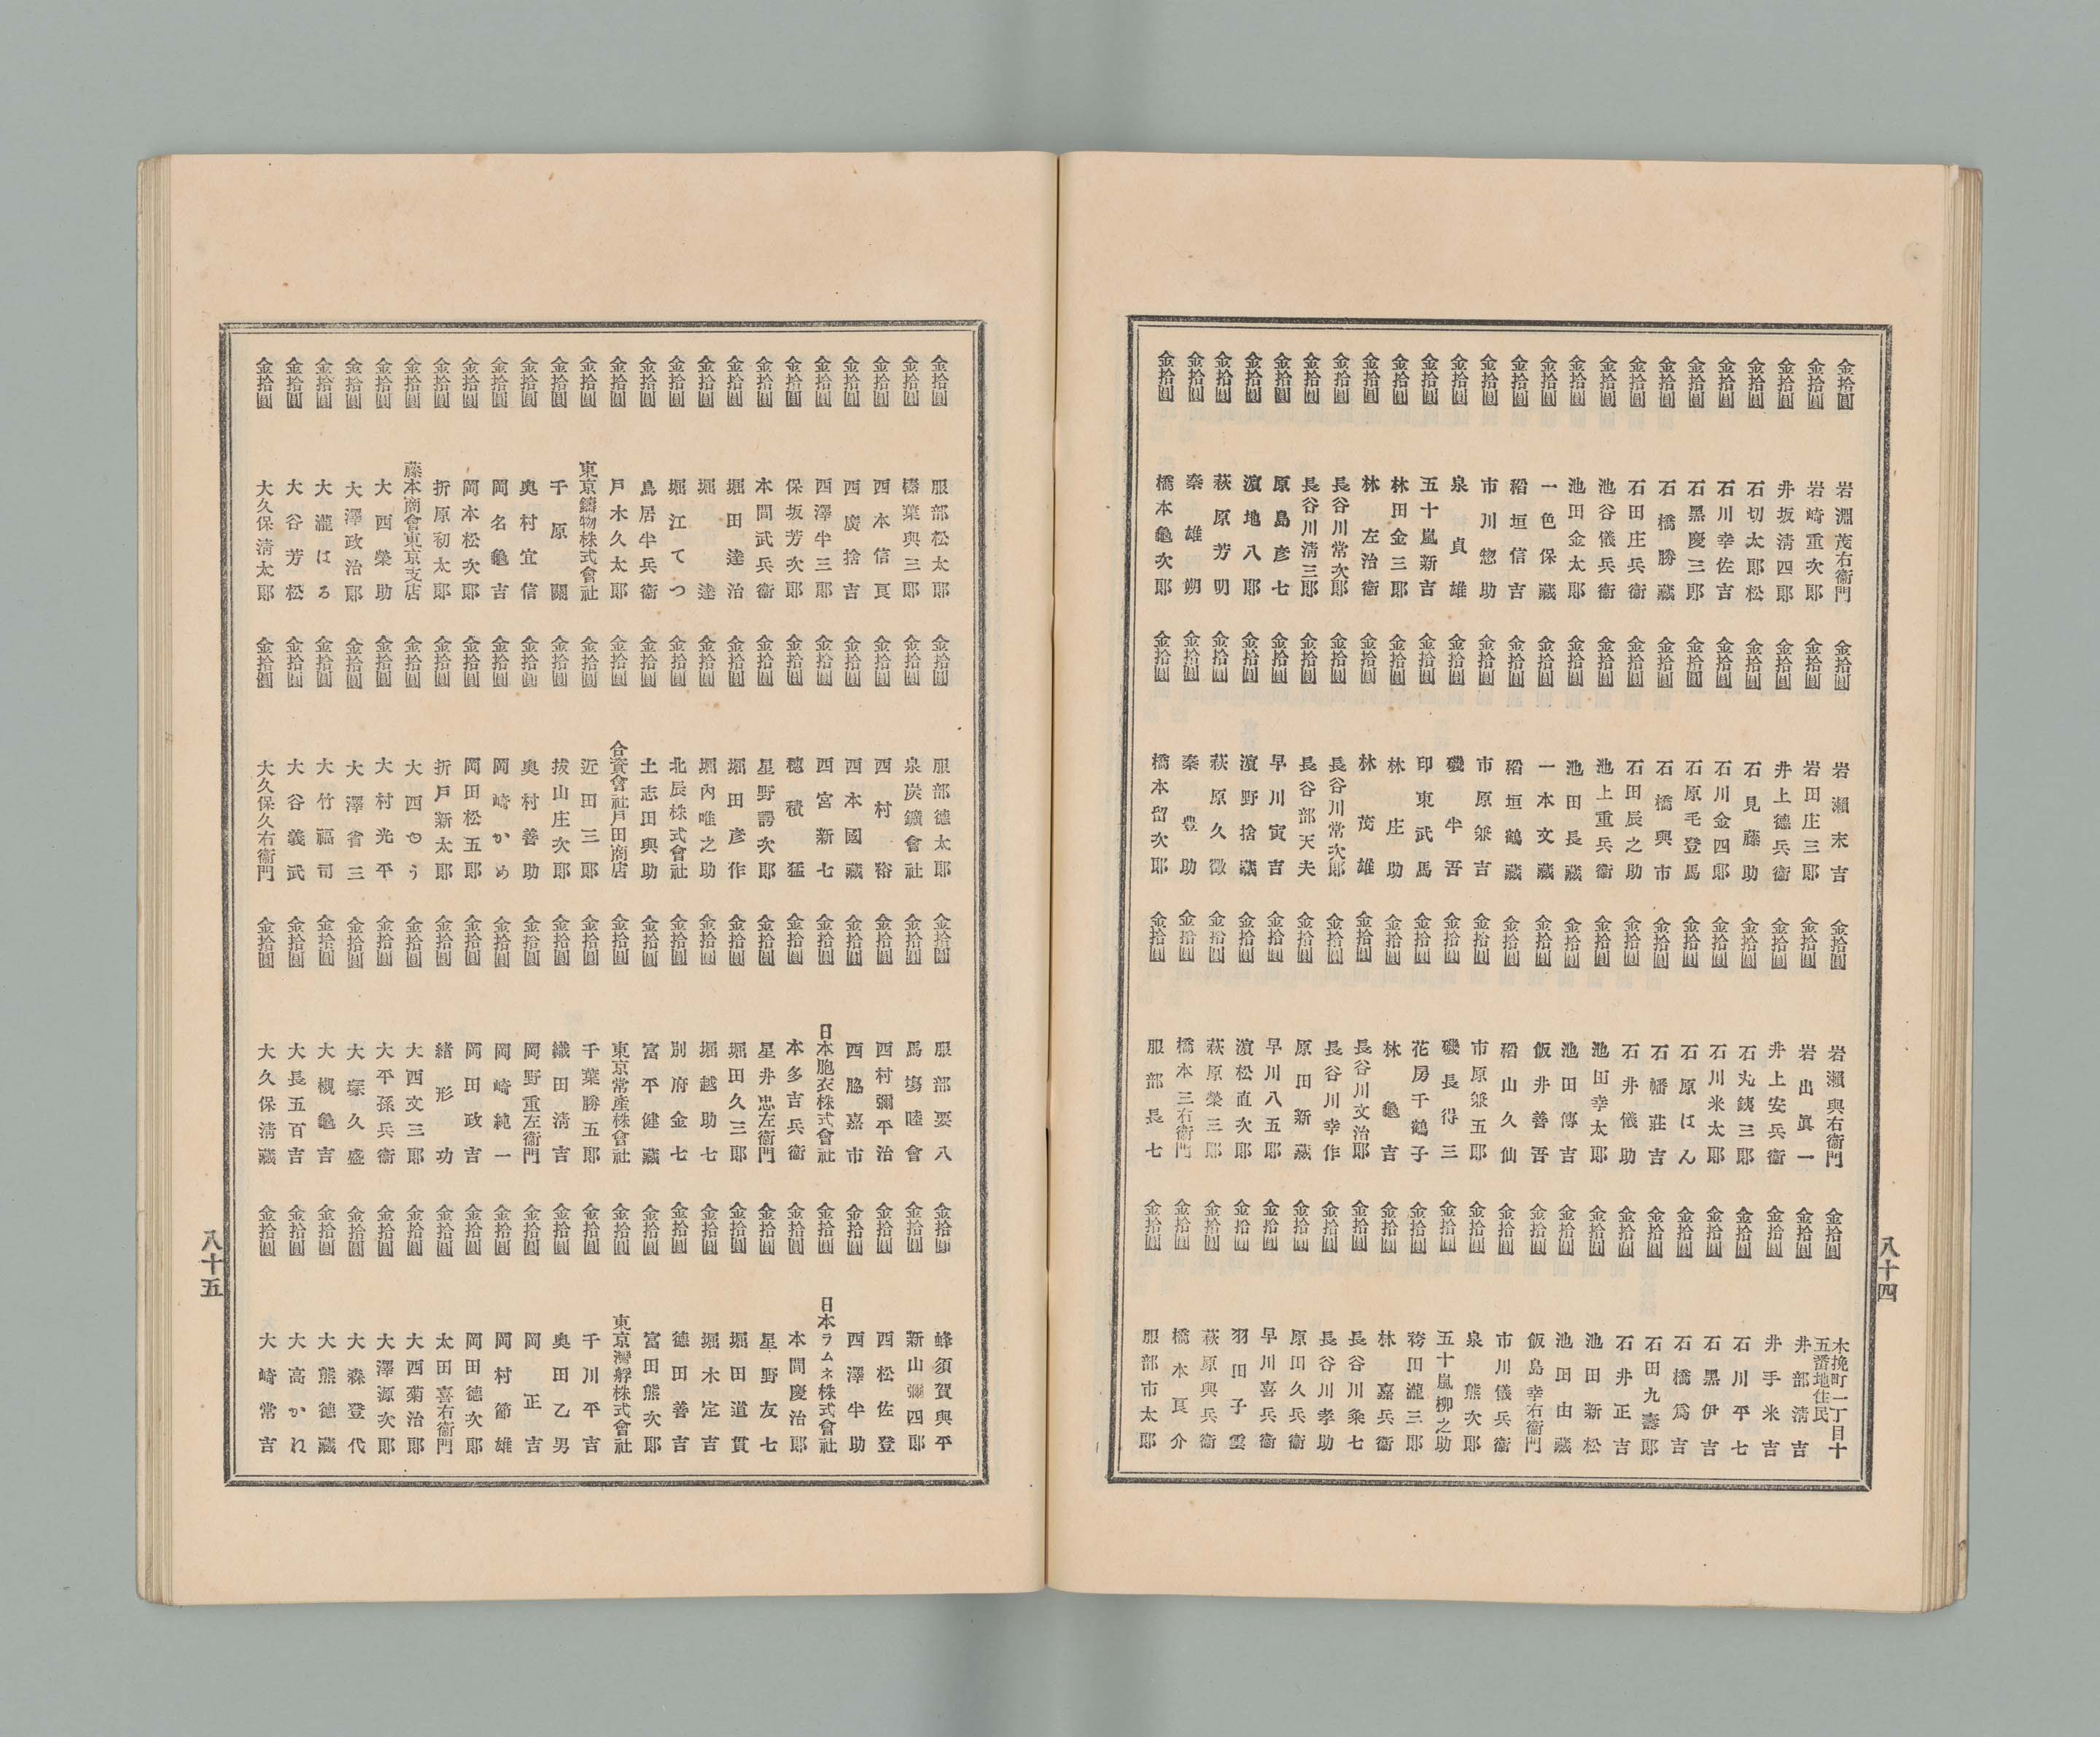 金拾圓 岩淵茂右衛門 金拾圓 岩瀬末吉 金拾圓 岩瀬與右衛門 金拾圓 木挽町一丁目十五番地住民
金拾圓 岩崎重次郎 金拾圓 岩田庄三郎 金拾圓 岩出眞一 金拾圓 井部清吉
金拾圓 井坂清四郎 金拾圓 井上德兵衞 金拾圓 井上安兵衞 金拾圓 井手米吉
金拾圓 石切太郎松 金拾圓 石見藤助 金拾圓 石丸銕三郎 金拾圓 石川平七
金拾圓 石川幸佐吉 金拾圓 石川金四郎 金拾圓 石川米太郎 金拾圓 石黒伊吉
金拾圓 石黒慶三郎 金拾圓 石原毛登馬 金拾圓 石原はん 金拾圓 石橋爲吉
金拾圓 石橋勝藏 金拾圓 石橋興市 金拾圓 石幡莊吉 金拾圓 石田九壽郎
金拾圓 石田庄兵衞 金拾圓 石田辰之助 金拾圓 石井儀助 金拾圓 石井正吉
金拾圓 池谷儀兵衞 金拾圓 池上重兵衞 金拾圓 池田幸太郎 金拾圓 池田新松
金拾圓 池田金太郎 金拾圓 池田長藏 金拾圓 池田傳吉 金拾圓 池田由藏
金拾圓 一色保藏 金拾圓 一本文藏 金拾圓 飯井善吾 金拾圓 飯島幸右衞門
金拾圓 稻垣信吉 金拾圓 稻垣鶴藏 金拾圓 稻山久仙 金拾圓 市川儀兵衞
金拾圓 市川惣助 金拾圓 市原兼吉 金拾圓 市原兼五郎 金拾圓 泉熊次郎
金拾圓 泉貞雄 金拾圓 磯半吾 金拾圓 磯長得三 金拾圓 五十嵐柳之助
金拾圓 五十嵐新吉 金拾圓 印東武馬 金拾圓 花房千鶴子 金拾圓 袴田瀧三郎
金拾圓 林田金三郎 金拾圓 林庄助 金拾圓 林龜吉 金拾圓 林嘉兵衞
金拾圓 林左治衞 金拾圓 林茂雄 金拾圓 長谷川文治郎 金拾圓 長谷川粂七
金拾圓 長谷川常次郎 金拾圓 長谷川常次郎 金拾圓 長谷川幸作 金拾圓 長谷川孝助
金拾圓 長谷川淸三郎 金拾圓 長谷部天夫 金拾圓 原田新藏 金拾圓 原田久兵衞
金拾圓 原島彦七 金拾圓 早川寅吉 金拾圓 早川八五郎 金拾圓 早川喜兵衞
金拾圓 濵地八郎 金拾圓 濵野捨藏 金拾圓 濵松直次郎 金拾圓 羽田子雲
金拾圓 萩原芳明 金拾圓 萩原久徵 金拾圓 萩原榮三郎 金拾圓 萩原興兵衞
金拾圓 秦雄朔 金拾圓 秦豊助 金拾圓 橋本三右衞門 金拾圓 橋本良介
金拾圓 橋本龜次郎 金拾圓 橋本留次郎 金拾圓 服部長七 金拾圓 服部市太郎
八十四
金拾圓 服部松太郎 金拾圓 服部德太郎 金拾圓 服部要八 金拾圓 蜂須賀與平
金拾圓 榛葉與三郎 金拾圓 泉炭鑛會社 金拾圓 馬塲睦會 金拾圓 新山彌四郎
金拾圓 西本信良 金拾圓 西村裕 金拾圓 西村彌平治 金拾圓 西松佐登
金拾圓 西廣捨吉 金拾圓 西本國藏 金拾圓 西脇嘉市 金拾圓 西澤半助
金拾圓 西澤半三郎 金拾圓 西宮新七 金拾圓 日本胞衣株式會社 金拾圓 日本ラムネ株式會社
金拾圓 保坂芳次郎 金拾圓 穗積猛 金拾圓 本多吉兵衞 金拾圓 本間慶治郎
金拾圓 本間武兵衞 金拾圓 星野諤次郎 金拾圓 星井忠左衞門 金拾圓 星野友七
金拾圓 堀田達治 金拾圓 堀田彦作 金拾圓 堀田久三郎 金拾圓 堀田道貫
金拾圓 堀達 金拾圓 堀內唯之助 金拾圓 堀越助七 金拾圓 堀木定吉
金拾圓 堀江てつ 金拾圓 北辰株式會社 金拾圓 別府金七 金拾圓 德田善吉
金拾圓 鳥居半兵衞 金拾圓 土志田與助 金拾圓 富平健藏 金拾圓 富田熊次郎
金拾圓 戸木久太郎 金拾圓 合資會社戸田商店 金拾圓 東京常產株會社 金拾圓 東京灣艀株式會社
金拾圓 東京鑄物株式會社 金拾圓 近田三郎 金拾圓 千葉勝五郎 金拾圓 千川平吉
金拾圓 千原關 金拾圓 拔山庄次郎 金拾圓 織田淸吉 金拾圓 奥田乙男
金拾圓 奥村宜信 金拾圓 奥村善助 金拾圓 岡野重左衞門 金拾圓 岡正吉
金拾圓 岡名龜吉 金拾圓 岡崎かめ 金拾圓 岡崎純一 金拾圓 岡村節雄
金拾圓 岡本松次郎 金拾圓 岡田松五郎 金拾圓 岡田政吉 金拾圓 岡田德次郎
金拾圓 折原初太郎 金拾圓 折戸新太郎 金拾圓 緖形功 金拾圓 太田喜右衞門
金拾圓 藤本商會東京支店 金拾圓 大西もう 金拾圓 大西文三郎 金拾圓 大西菊治郎
金拾圓 大西榮助 金拾圓 大村光平 金拾圓 大平孫兵衞 金拾圓 大澤源次郎
金拾圓 大澤政治郎 金拾圓 大澤省三 金拾圓 大塚久盛 金拾圓 大森登代
金拾圓 大瀧はる 金拾圓 大竹福司 金拾圓 大槻龜吉 金拾圓 大熊德藏
金拾圓 大谷芳松 金拾圓 大谷義武 金拾圓 大長五百吉 金拾圓 大高かね
金拾圓 大久保淸太郎 金拾圓 大久保久右衞門 金拾圓 大久保淸藏 金拾圓 大崎常吉
八十五